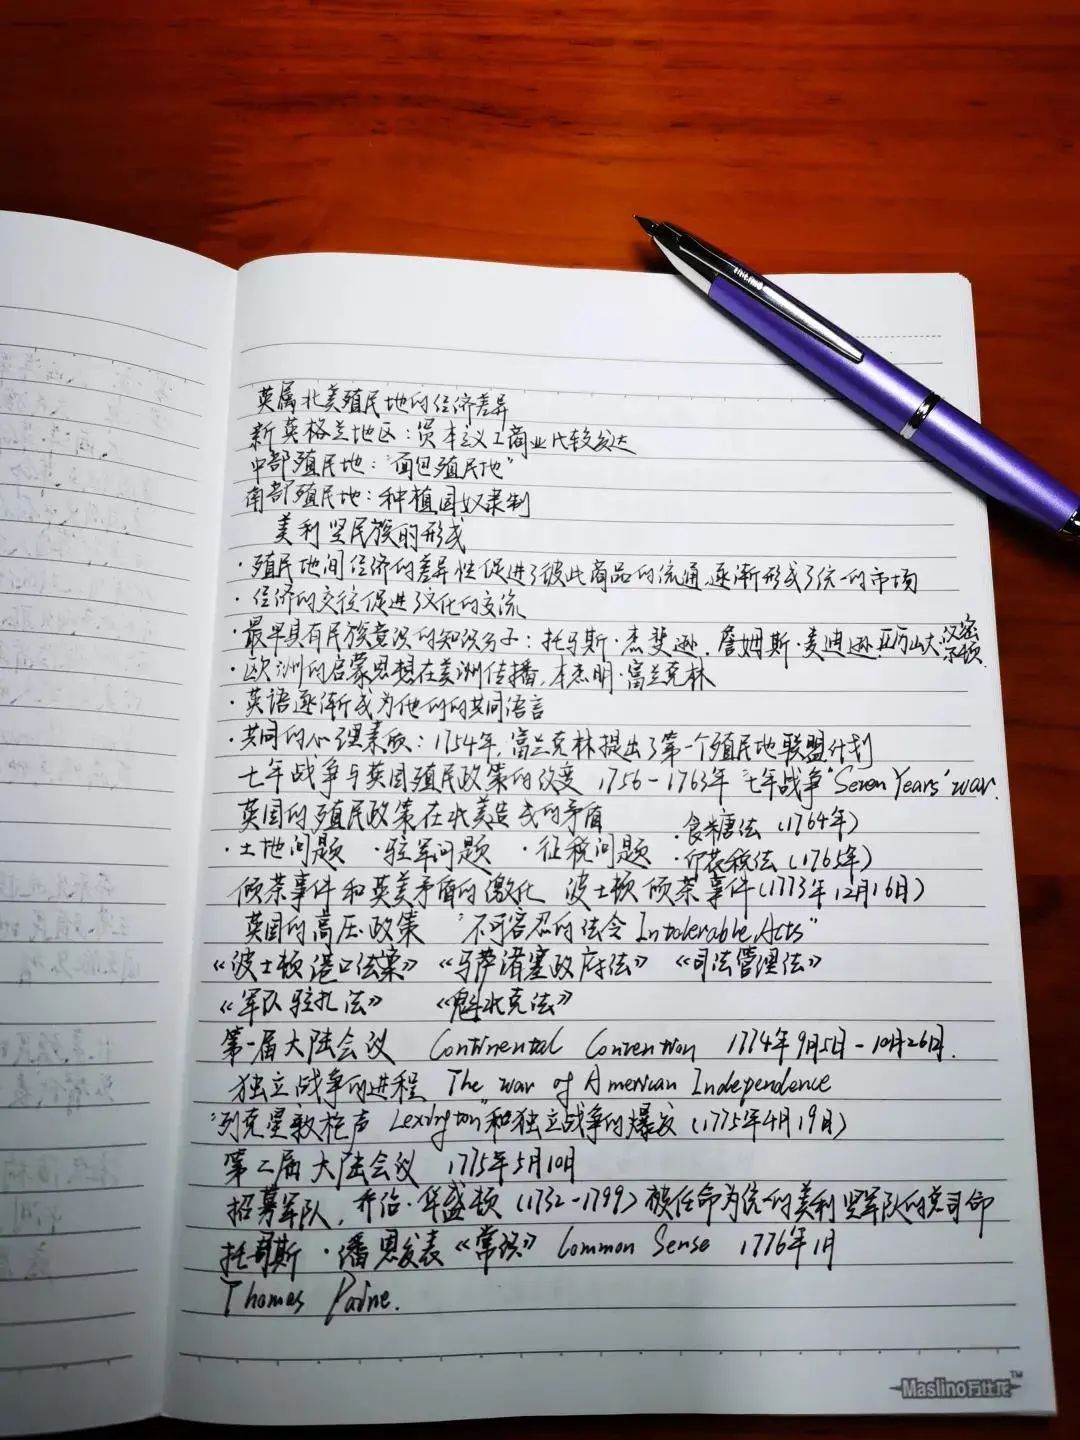 英属北美殖民地的经济差异
新英格兰地区：资本主义工商业比较发达
中部殖民地："面包殖民地"
南部殖民地：种植园奴隶制
美利坚民族的形成
·殖民地间经济的差异性促进了彼此商品的流通,逐渐形成了统一的市场
·经济的交往促进了文化的交流
·最早具有民族意识的知识分子：托马斯·杰斐逊.詹姆斯·麦迪逊.亚历山大·汉密尔顿.
·欧洲的启蒙思想在美洲传播,本杰明·富兰克林
·英语逐渐成为他们的共同语言
·共同的心理素质：1754年,富兰克林提出了第一个殖民地联盟计划
七年战争与英国殖民政策的改变 1756-1763年 七年战争"Seven Years' war.
英国的殖民政策在北美造成的矛盾 ·食糖法（1764年）
·土地问题 ·驻军问题 ·征税问题 ·印花税法（1765年）
倾茶事件和英美矛盾的激化 波士顿倾茶事件（1773年12月16日）
英国的高压政策 "不可容忍的法令 Intolerable Acts"
《波士顿港口法案》《马萨诸塞政府法》《司法管理法》
《军队驻扎法》 《魁北克法》
第一届大陆会议 Continental Convention 1774年9月5日-10月26日.
独立战争的进程 The war of American Independence
"列克星敦枪声 Lexington"和独立战争的爆发（1775年4月19日）
第二届大陆会议 1775年5月10日
招募军队，乔治·华盛顿（1732-1799）被任命为统一的美利坚军队的总司令
托马斯·潘恩发表《常识》Common Sense 1776年1月
Thomas Paine.
Maslino万仕龙™